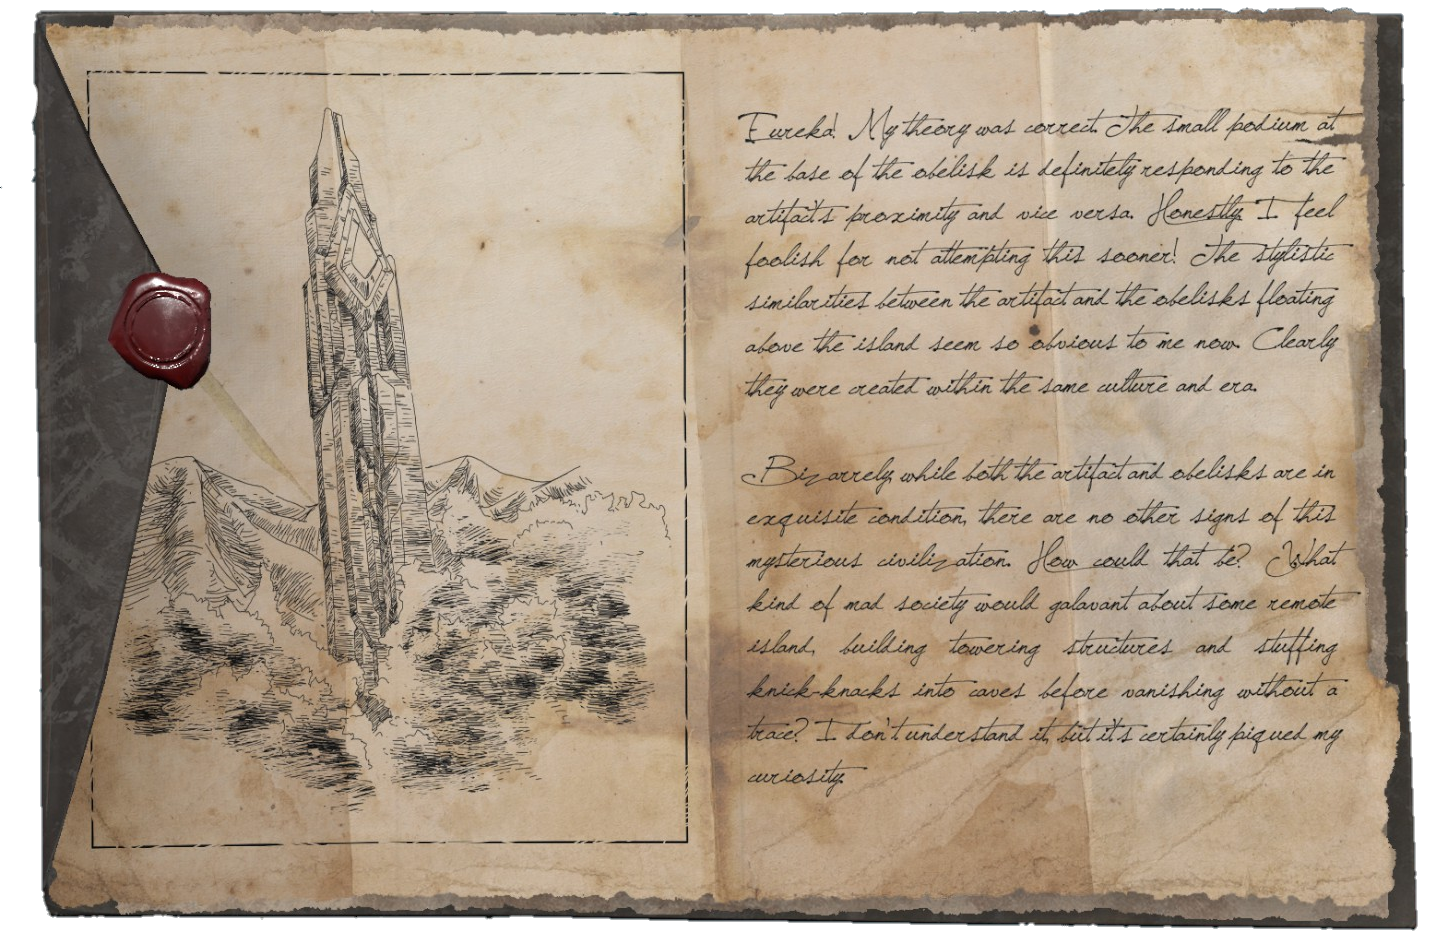 Eureka! My theory was correct. The small podium at
the base of the obelisk is definitely responding to the
artifact's proximity and vice versa. Honestly, I feel
foolish for not attempting this sooner! The stylistic
similarities between the artifact and the obelisks floating
above the island seem so obvious to me now. Clearly
they were created within the same culture and era.
Bizarrely, while both the artifact and obelisks are in
exquisite condition, there are no other signs of this
mysterious civilization. How could that be? What
kind of mad society would galavant about some remote
island, building towering structures and stuffing
knick-knacks into caves before vanishing without a
trace? I don't understand it, but it's certainly piqued my
curiosity.